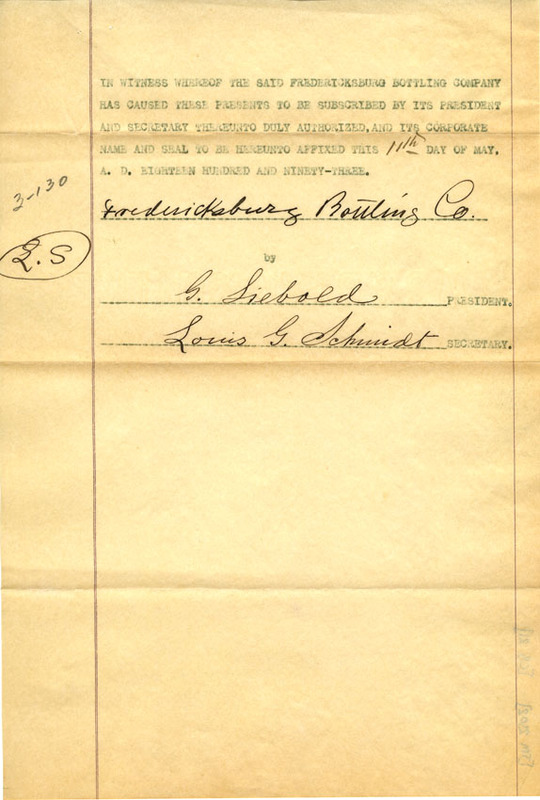 IN WITNESS WHEREOF THE SAID FREDERICKSBURG BOTTLING COMPANY
HAS CAUSED THESE PRESENTS TO BE SUBSCRIBED BY ITS PRESIDENT
AND SECRETARY THEREUNTO DULY AUTHORIZED, AND ITS CORPORATE
NAME AND SEAL TO BE HEREUNTO AFFIXED THIS 11th DAY OF MAY,
A. D. EIGHTEEN HUNDRED AND NINETY-THREE.
3-130
Fredericksburg Bottling Co.
L.S
by
G. Liebold PRESIDENT.
Louis G. Schmidt SECRETARY.